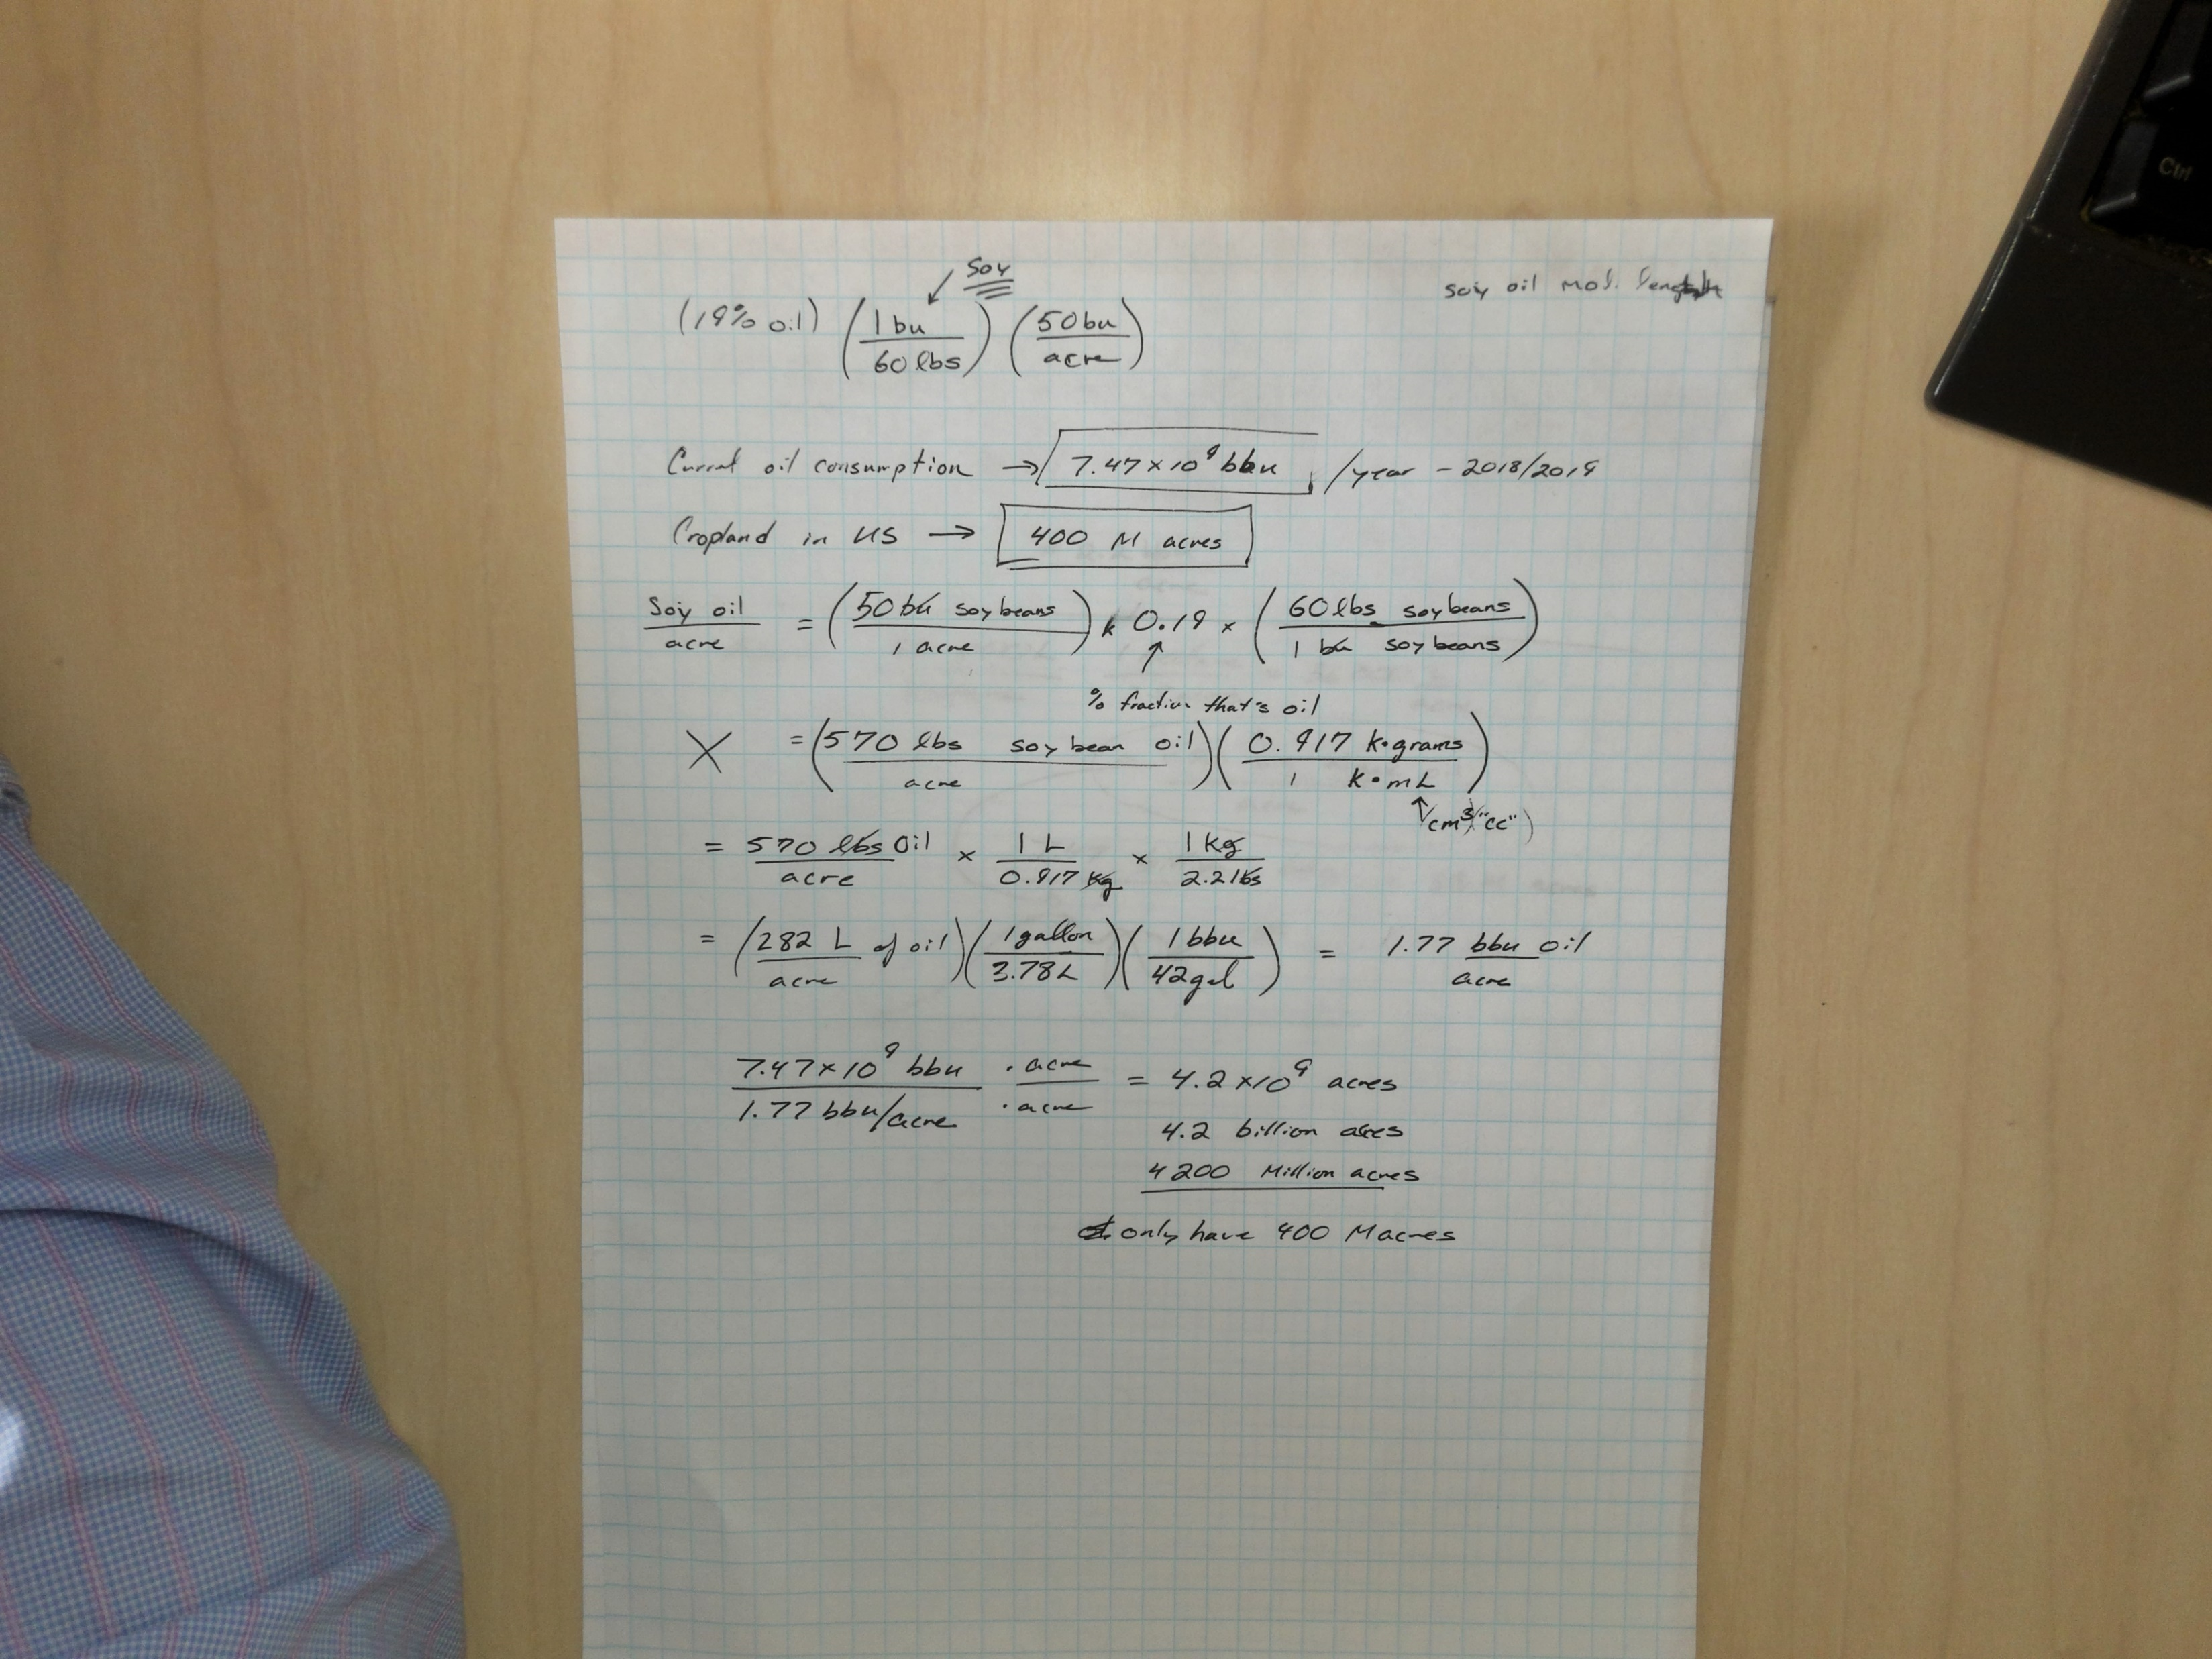 soy oil mol.
Soy
(19% oil) (1 bu / 60 lbs) (50 bu / acre)
Current oil consumption → 7.47 × 10^9 bbu /year - 2018/2019
Cropland in US → 400 M acres
Soy oil / acre = (50 bu soybeans / 1 acre) × 0.19 × (60 lbs soybeans / 1 bu soybeans)
↑
% fraction that's oil
X = (570 lbs soybean oil / acre) (0.917 k•grams / 1 k•mL)
↑ cm³ ("cc")
= 570 lbs Oil / acre × 1 L / 0.917 kg × 1 kg / 2.2 lbs
= (282 L of oil / acre) (1 gallon / 3.78 L) (1 bbu / 42 gal) = 1.77 bbu oil / acre
7.47×10^9 bbu / 1.77 bbu/acre · acre / · acre = 4.2 ×10^9 acres
4.2 billion acres
4200 Million acres
only have 400 M acres
Ctrl